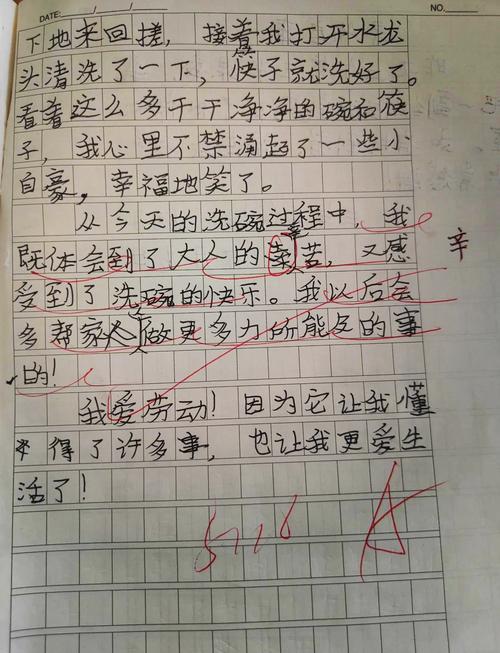 DATE: / / NO.
下地来回搓，接着我打开水龙
头清洗了一下，快子就洗好了。
看着这么多干干净净的碗和筷
子，我心里不禁涌起了一些小
自豪，幸福地笑了。
从今天的洗碗过程中，我
既体会到了大人的辛苦，又感
辛
受到了洗碗的快乐。我以后会
多帮家人做更多力所能及的事
的！
我爱劳动！因为它让我懂
得了许多事，也让我更爱生
活了！
5.16 A